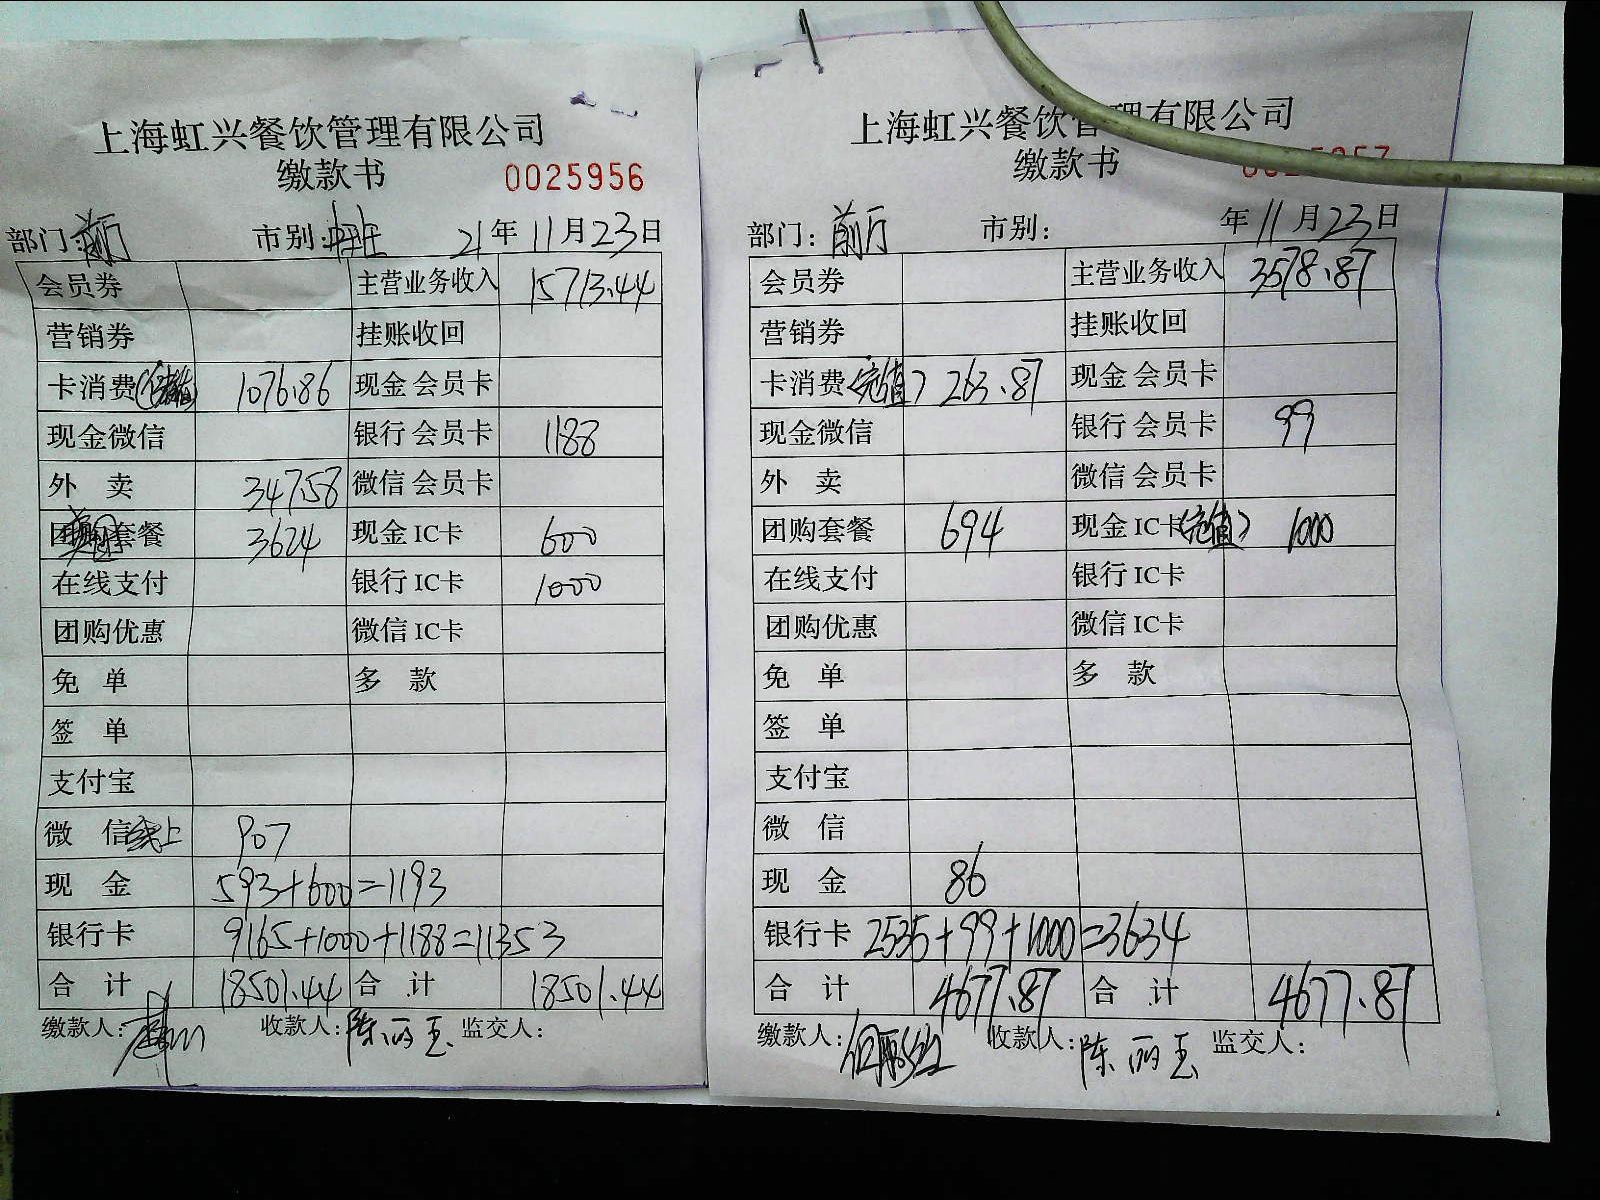 上海虹兴餐饮管理有限公司
缴款书 0025956
部门:前厅 市别: 21年11月23日
会员券 主营业务收入 15713.44
营销券 挂账收回
卡消费 1076.86 现金会员卡
现金微信 银行会员卡 1188
外卖 347.58 微信会员卡
团购套餐 3624 现金IC卡 600
在线支付 银行IC卡 1000
团购优惠 微信IC卡
免单 多款
签单
支付宝
微信线上 907
现金 593+600=1193
银行卡 9165+1000+1188=11353
合计 18501.44 合计 18501.44
缴款人: 收款人:陈丽玉 监交人:
上海虹兴餐饮管理有限公司
缴款书
部门:前厅 市别: 年11月23日
会员券 主营业务收入 3578.87
营销券 挂账收回
卡消费(充值) 263.87 现金会员卡
现金微信 银行会员卡 99
外卖 微信会员卡
团购套餐 694 现金IC卡(充值) 1000
在线支付 银行IC卡
团购优惠 微信IC卡
免单 多款
签单
支付宝
微信
现金 86
银行卡 2535+99+1000=3634
合计 4677.87 合计 4677.87
缴款人: 收款人:陈丽玉 监交人: